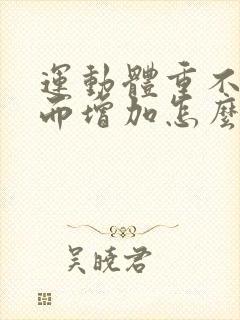 運動體重不
而增加怎麼
吴晓君